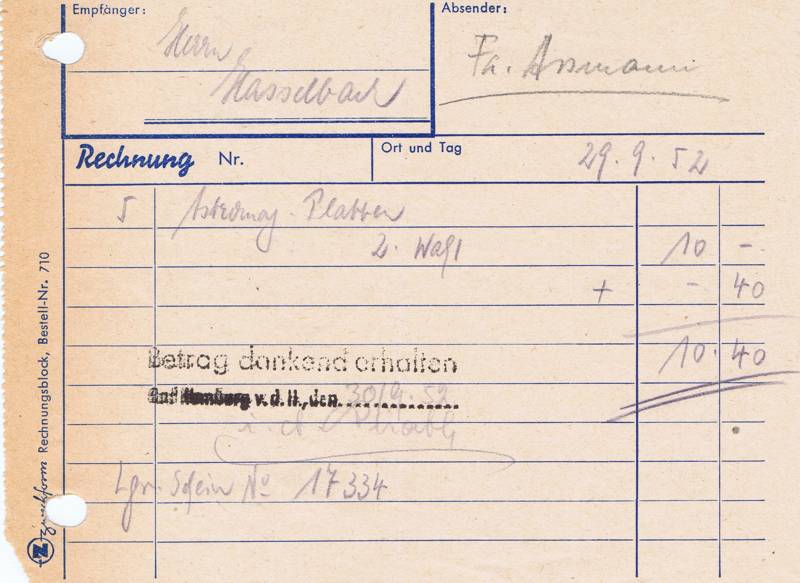 Empfänger:
Herrn
Hasselbach
Absender:
Fa. Assmann
Rechnung Nr.
Ort und Tag
29.9.52
5 Platten
2. Wahl 10 -
+ - 40
10.40
Betrag dankend erhalten
Bad Homburg v.d.H., den 30/9.52
Lgr. Schein No 17334
Zweckform Rechnungsblock, Bestell-Nr. 710